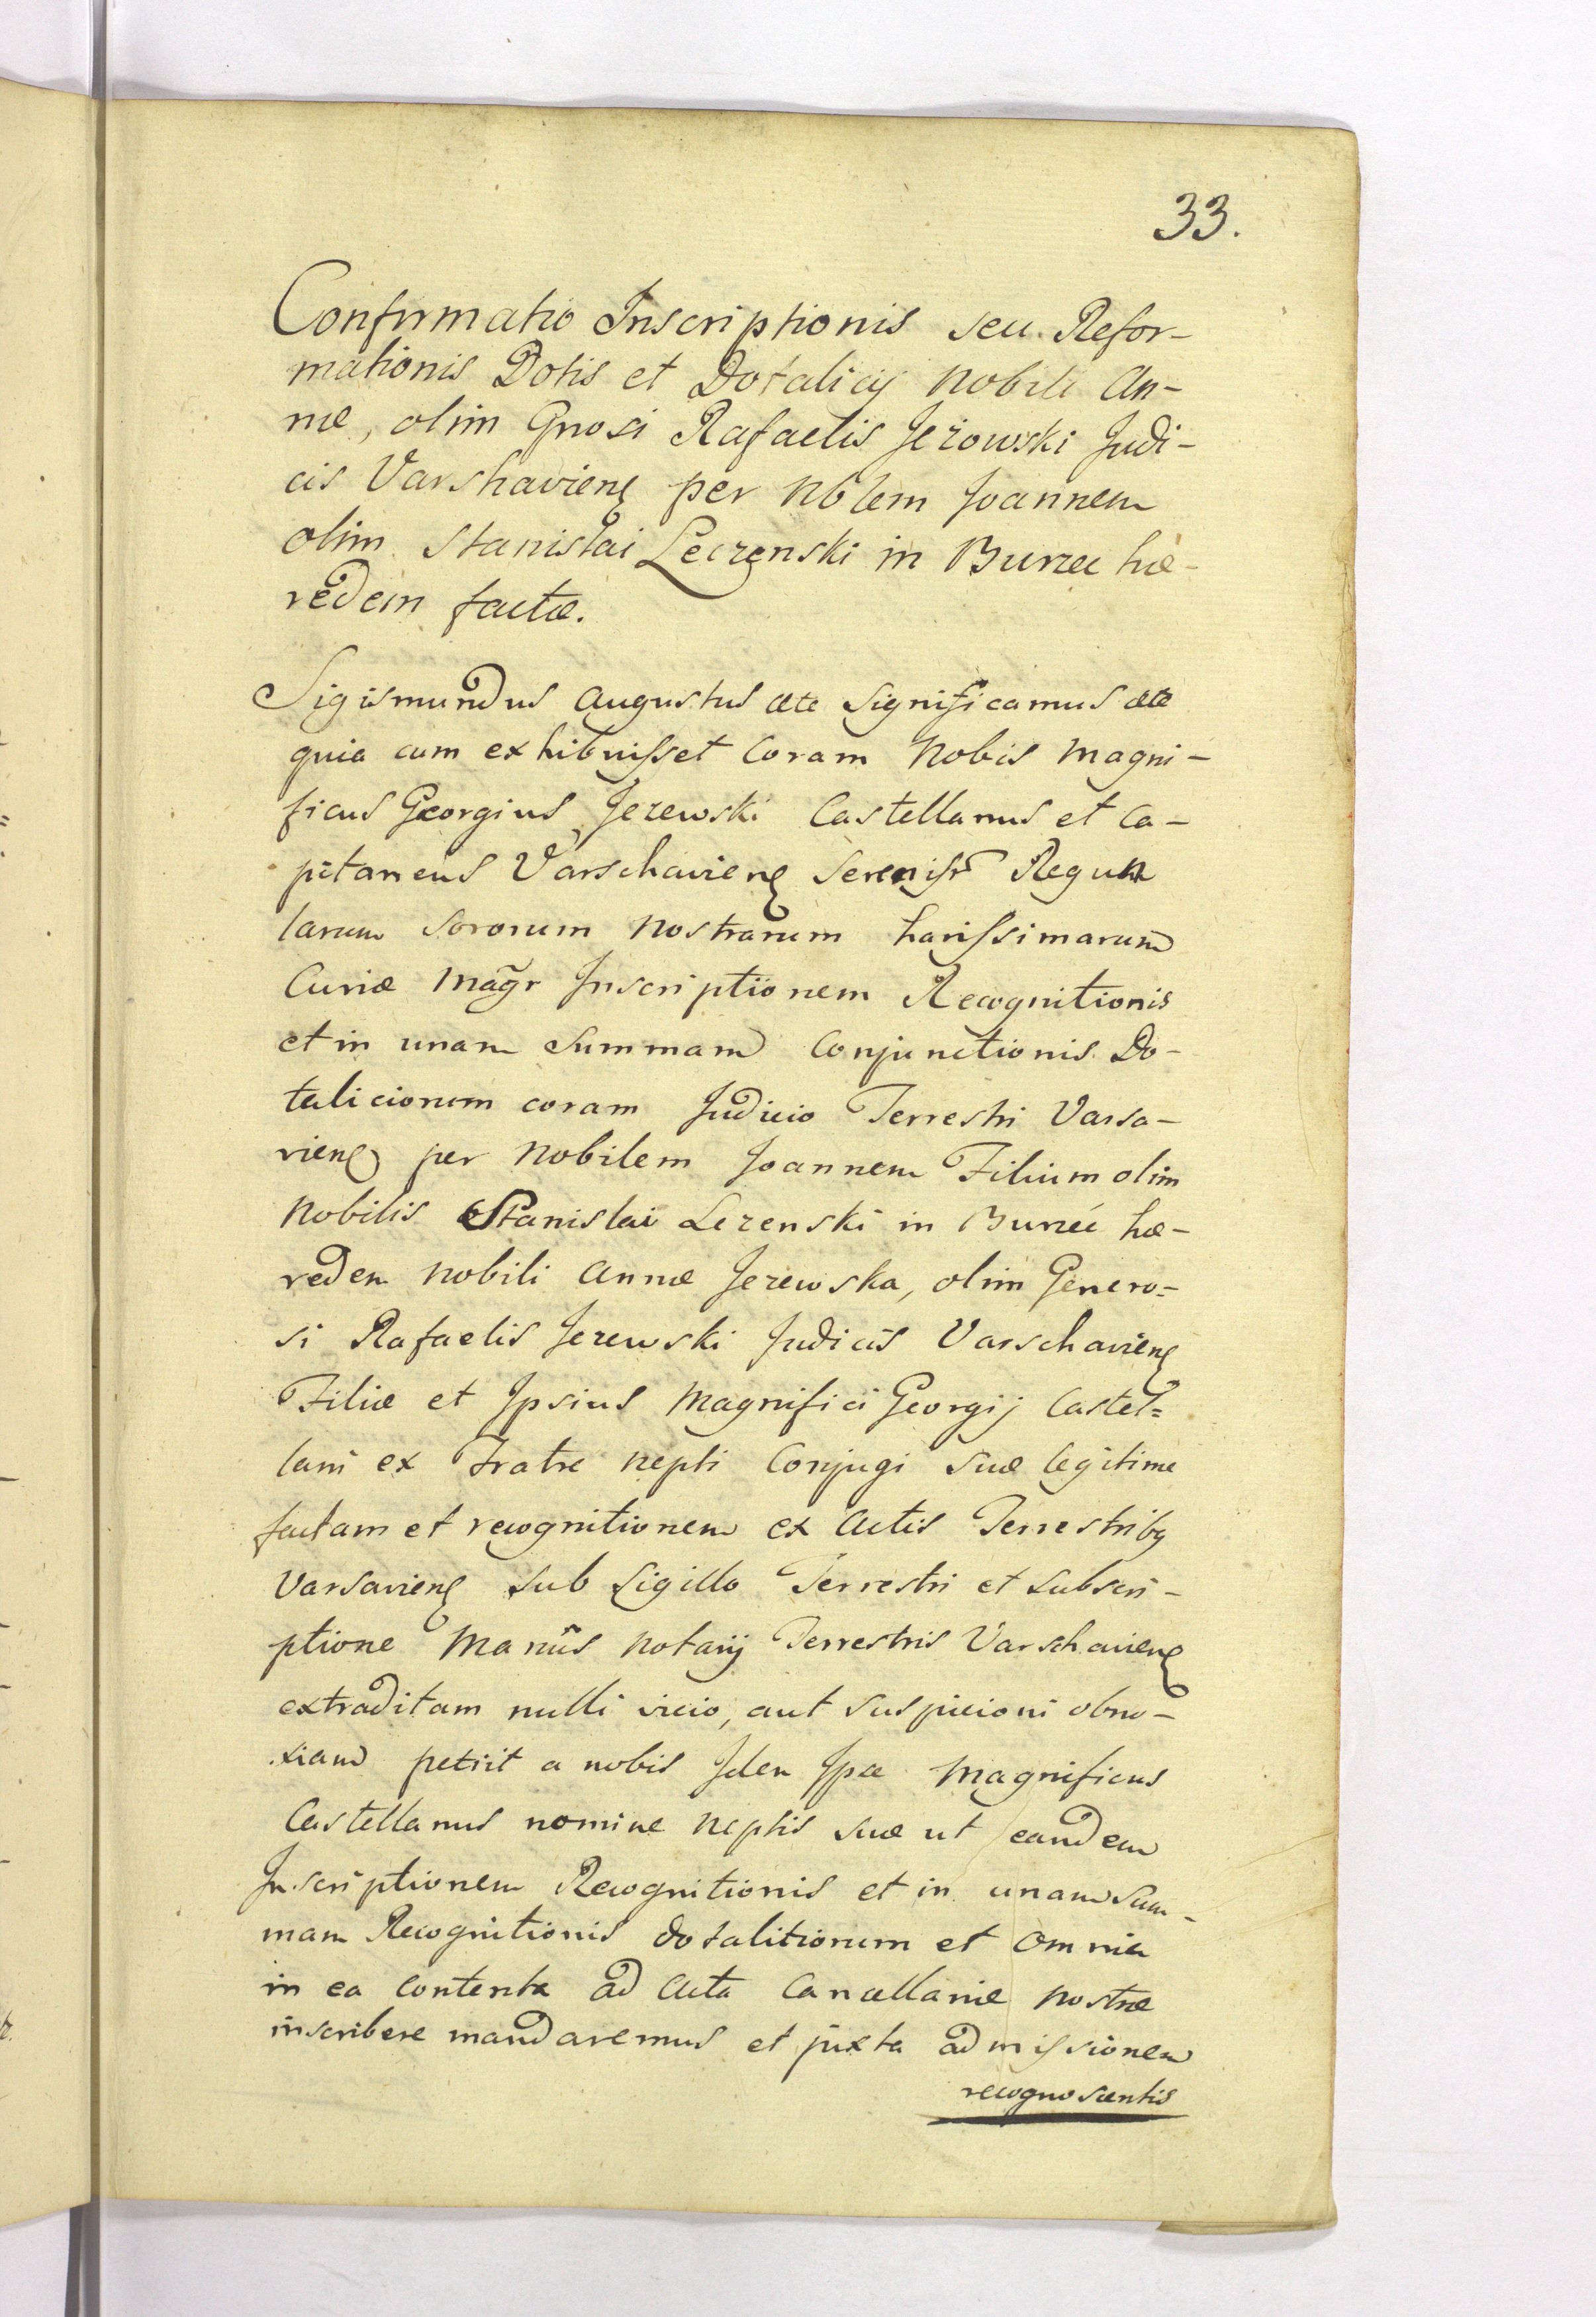 33.
Confirmatio Inscriptionis seu Refor-
mationis Dotis et Dotalicij Nobili An-
næ, olim Gnosi Rafaelis Jeżowski Judi-
cis Varshaviens per Nblem Joannem
olim Stanislai Leczenski in Burzec hæ-
redem factæ.
Sigismundus Augustus etc significamus etc
quia cum exhibuisset coram Nobis Magni-
ficus Georgius Jezewski Castellanus et Ca-
pitaneus Varschaviens Sereniss Regun
larum sororum nostrarum charissimarum
Curiæ Magr Inscriptionem Recognitionis
et in unam summam conjunctionis Do-
taliciorum coram Judicio Terrestri Varsa-
viens per Nobilem Joannem Filium olim
Nobilis Stanislai Lezenski in Burzec hæ-
redem Nobili Annæ Jezewska, olim Genero=
si Rafaelis Jezewski Judicis Varschaviens
Filiæ et Ipsius Magnifici Georgij Castel=
lani ex Fratre nepti Conjugi suæ legitime
factam et recognitionem ex Actis Terrestribq
Varsaviens sub Sigillo Terrestri et subscri-
ptione Manûs Notarij Terrestris Varschaviens
extraditam nulli vicio, aut suspicioni obno-
xiam petiit a nobis Idem Ipse Magnificus
Castellanus nomine neptis suæ ut eandem
Inscriptionem Recognitionis et in unam sum-
mam Recognitionis dotalitiorum et omnia
in ea contenta ad Acta Cancellariæ nostræ
inscribere mandaremus et juxta admissionem
recognoscentis